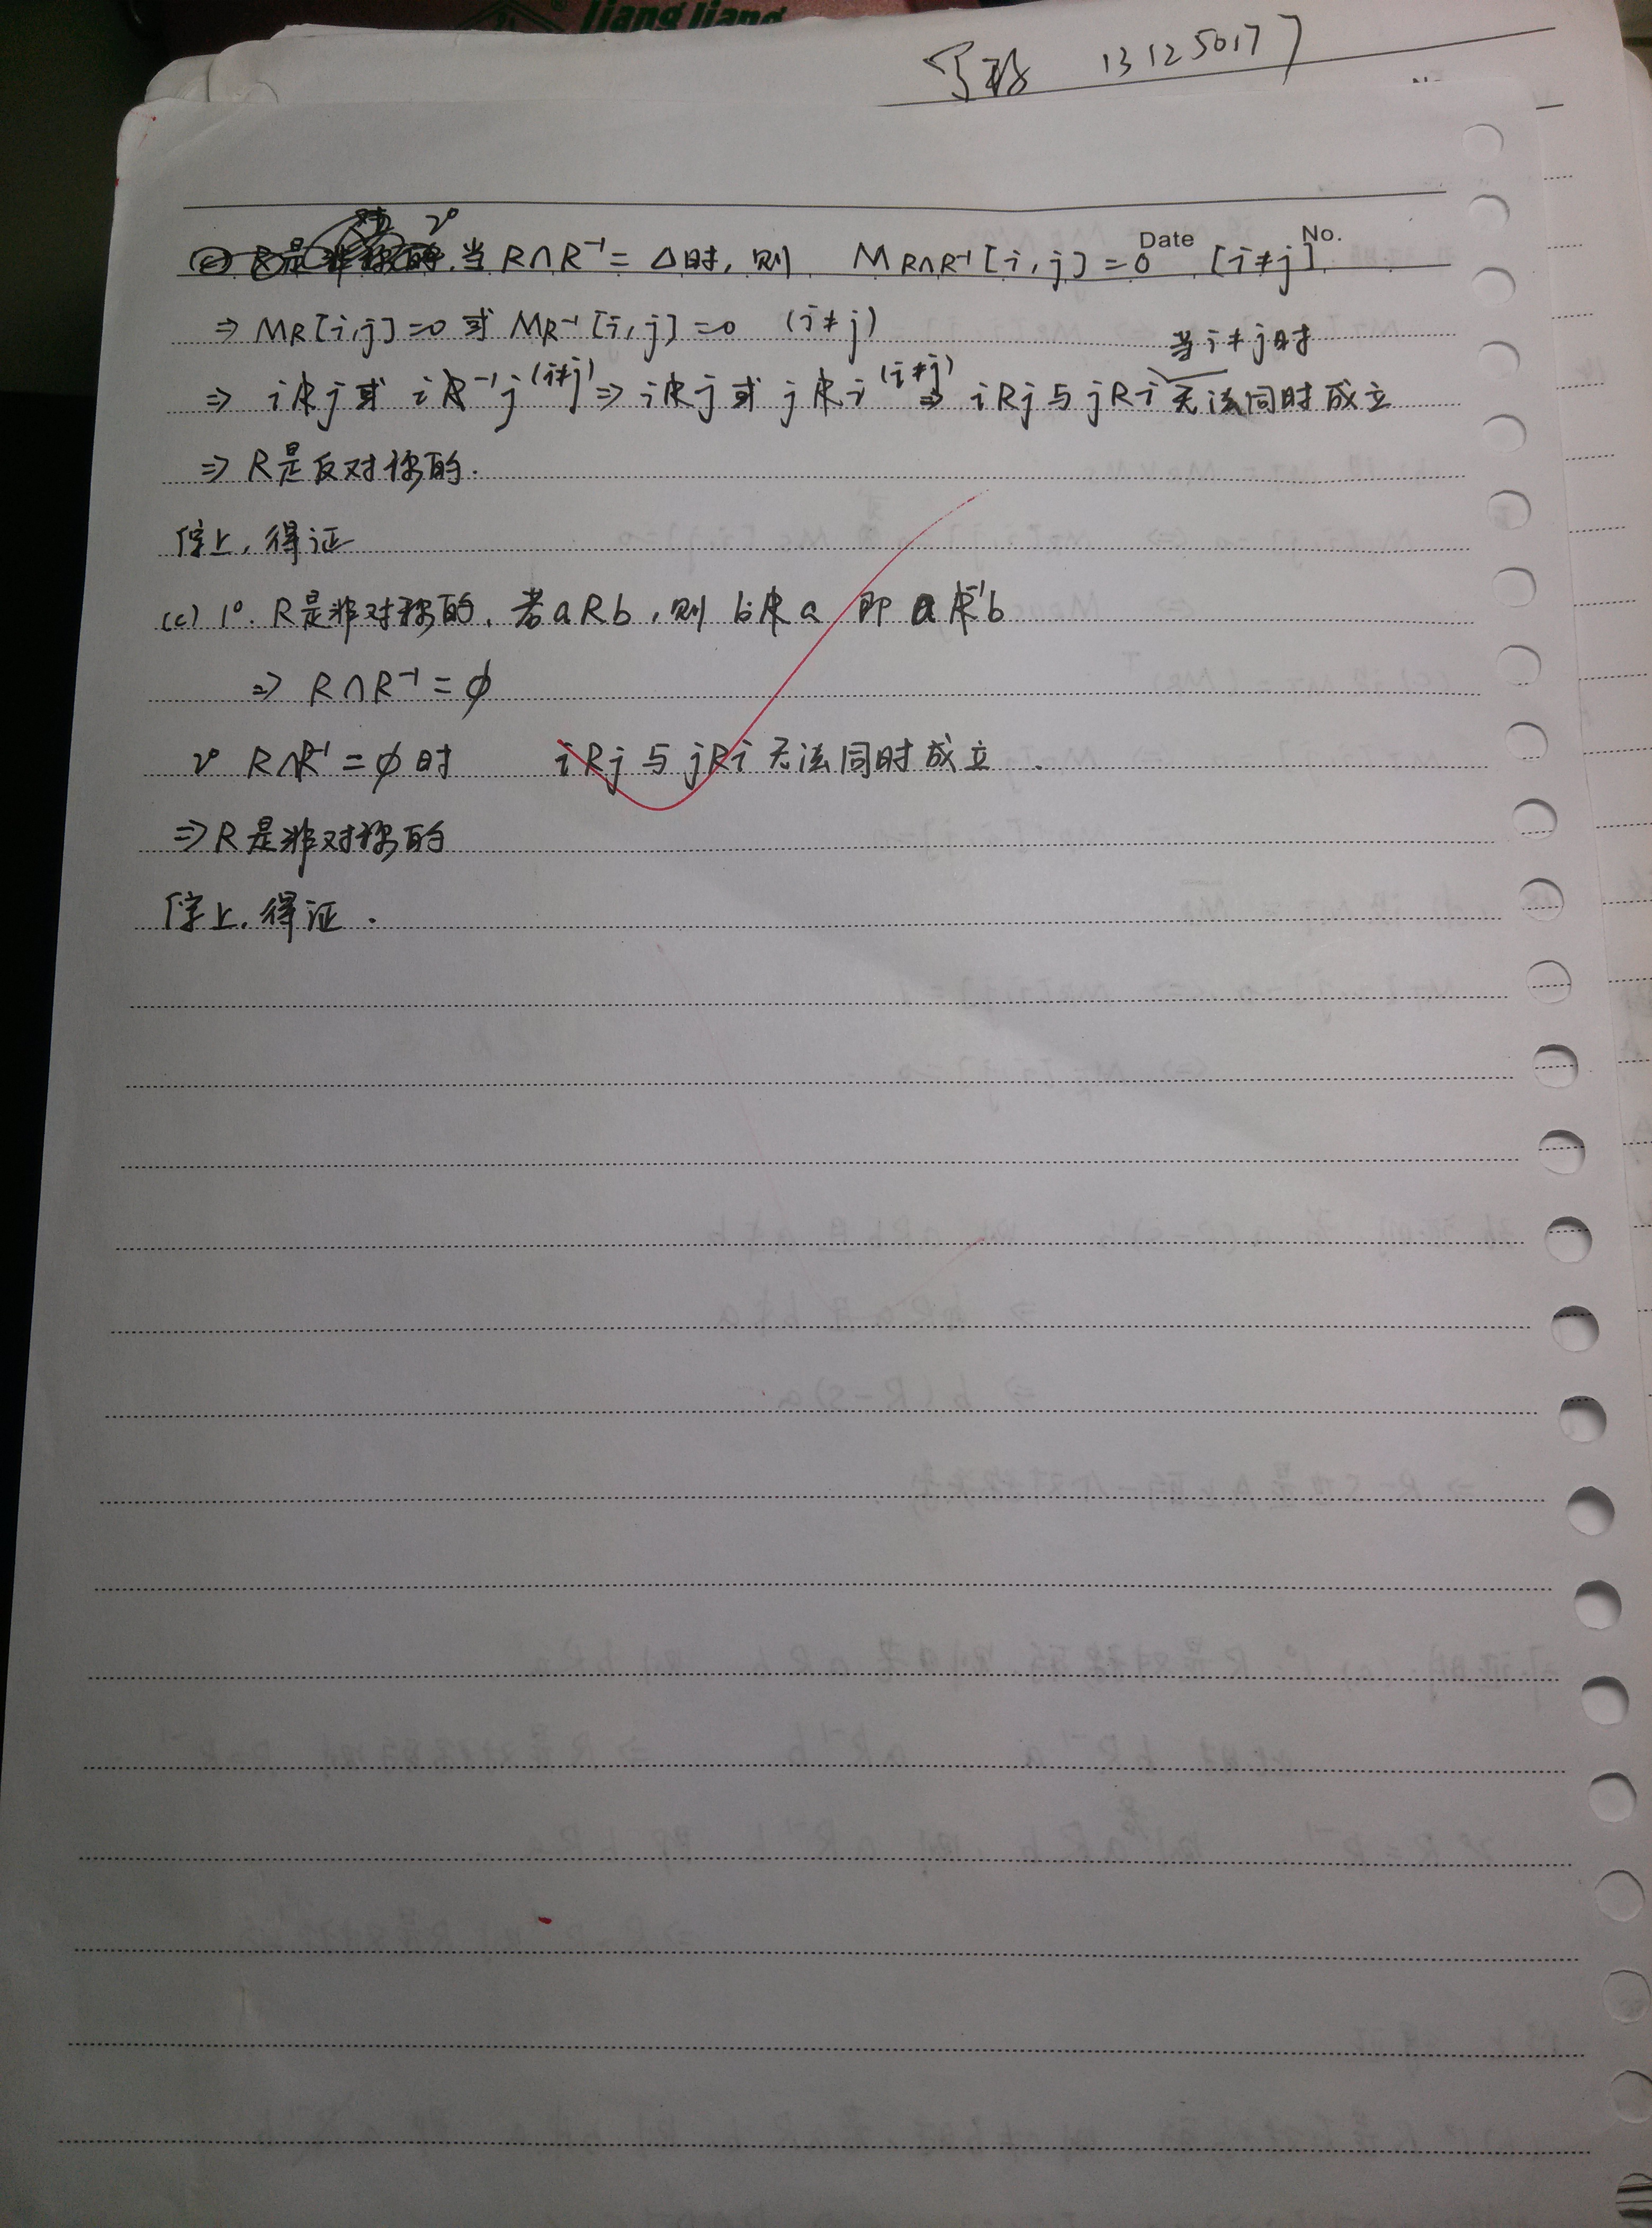 liangliang
13125017
Date No.
2° 当 R∩R⁻¹ = Δ时, 则 M_{R∩R⁻¹}[i,j] = 0 [i≠j]
⇒ M_R[i,j]=0 或 M_{R⁻¹}[i,j]=0 (i≠j)
当i≠j时
⇒ i R̸ j 或 i R̸⁻¹ j (i≠j) ⇒ i R̸ j 或 j R̸ i (i≠j) ⇒ iRj 与 jRi 无法同时成立
⇒ R是反对称的.
综上, 得证
(c) 1°. R是非对称的, 若aRb, 则 b R̸ a 即 a R̸⁻¹ b
⇒ R∩R⁻¹ = ϕ
2° R∩R⁻¹ = ϕ 时 iRj 与 jRi 无法同时成立.
⇒ R是非对称的
综上, 得证.